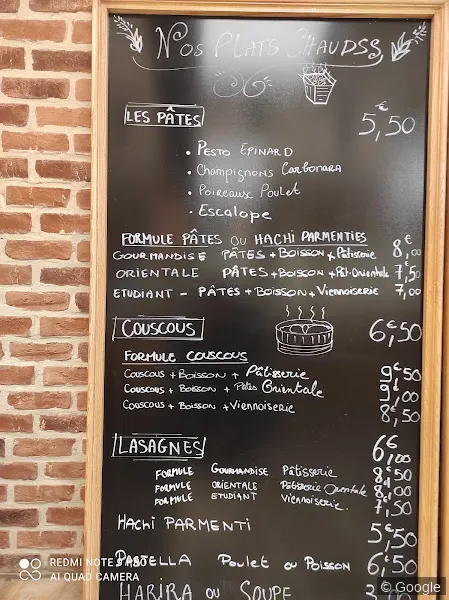 Nos Plats Chauds
LES PÂTES 5,50€
• Pesto Epinard
• Champignons Carbonara
• Poireaux Poulet
• Escalope
FORMULE PÂTES ou HACHI PARMENTIES
GOURMANDISE PÂTES + Boisson + Pâtisserie 8,00€
ORIENTALE PÂTES + Boisson + Pât. Orientale 7,50
ETUDIANT - PÂTES + Boisson + Viennoiserie 7,00
COUSCOUS 6€,50
FORMULE COUSCOUS
Couscous + Boisson + Pâtisserie 9€50
Couscous + Boisson + Pâtis Orientale 9€,00
Couscous + Boisson + Viennoiserie 8€,50
LASAGNES 6€,00
FORMULE GOURMANDISE Pâtisserie 8€,50
FORMULE ORIENTALE Pâtisserie Orientale 8€,00
FORMULE ETUDIANT Viennoiserie. 7€,50
HACHI PARMENTI 5€,50
PASTELLA Poulet ou Poisson 6€,50
HARIRA ou SOUPE
REDMI NOTE
AI QUAD CAMERA
© Google